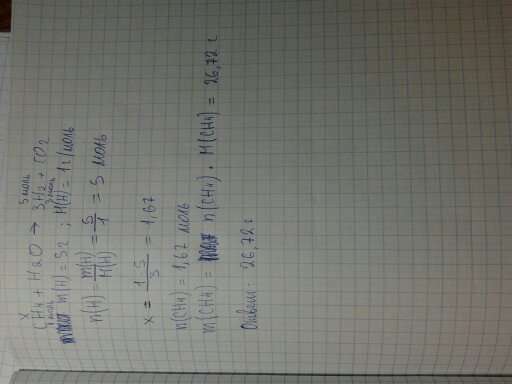 x 5 моль
CH4 + H2O → 3H2 + CO2
1 моль 3 моль
m(H) = 5г ; M(H) = 1г/моль
n(H) = m(H)/M(H) = 5/1 = 5 моль
x = 1·5/3 = 1,67
n(CH4) = 1,67 моль
m(CH4) = n(CH4) · M(CH4) = 26,72 г
Ответ: 26,72 г